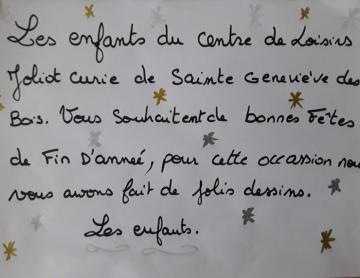 Les enfants du centre de Loisirs
Joliot Curie de Sainte Geneviève des
Bois. Vous Souhaitent de bonnes Fêtes
de Fin D'anneé, pour cette occasion nous
vous avons fait de jolis dessins.
Les enfants.